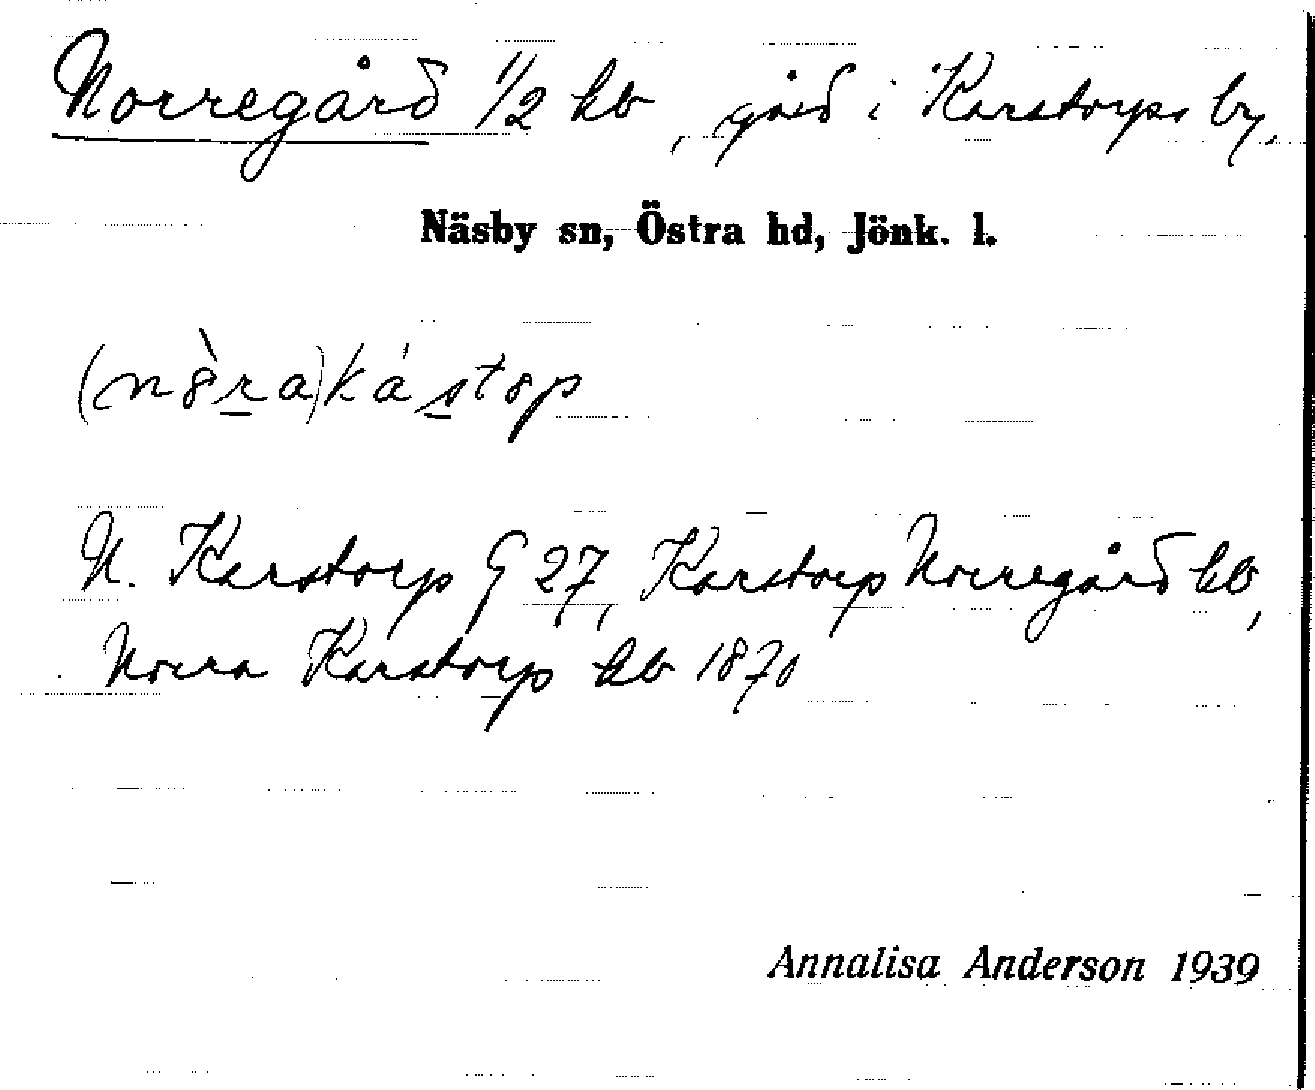 Norregård 1/2 hb, gård i Karstorps by,
Näsby sn, Östra hd, Jönk. l.
(nèra)kástop
N. Karstorp G 27, Karstorp Norregård hb,
Norra Karstorp hb 1870
Annalisa Anderson 1939